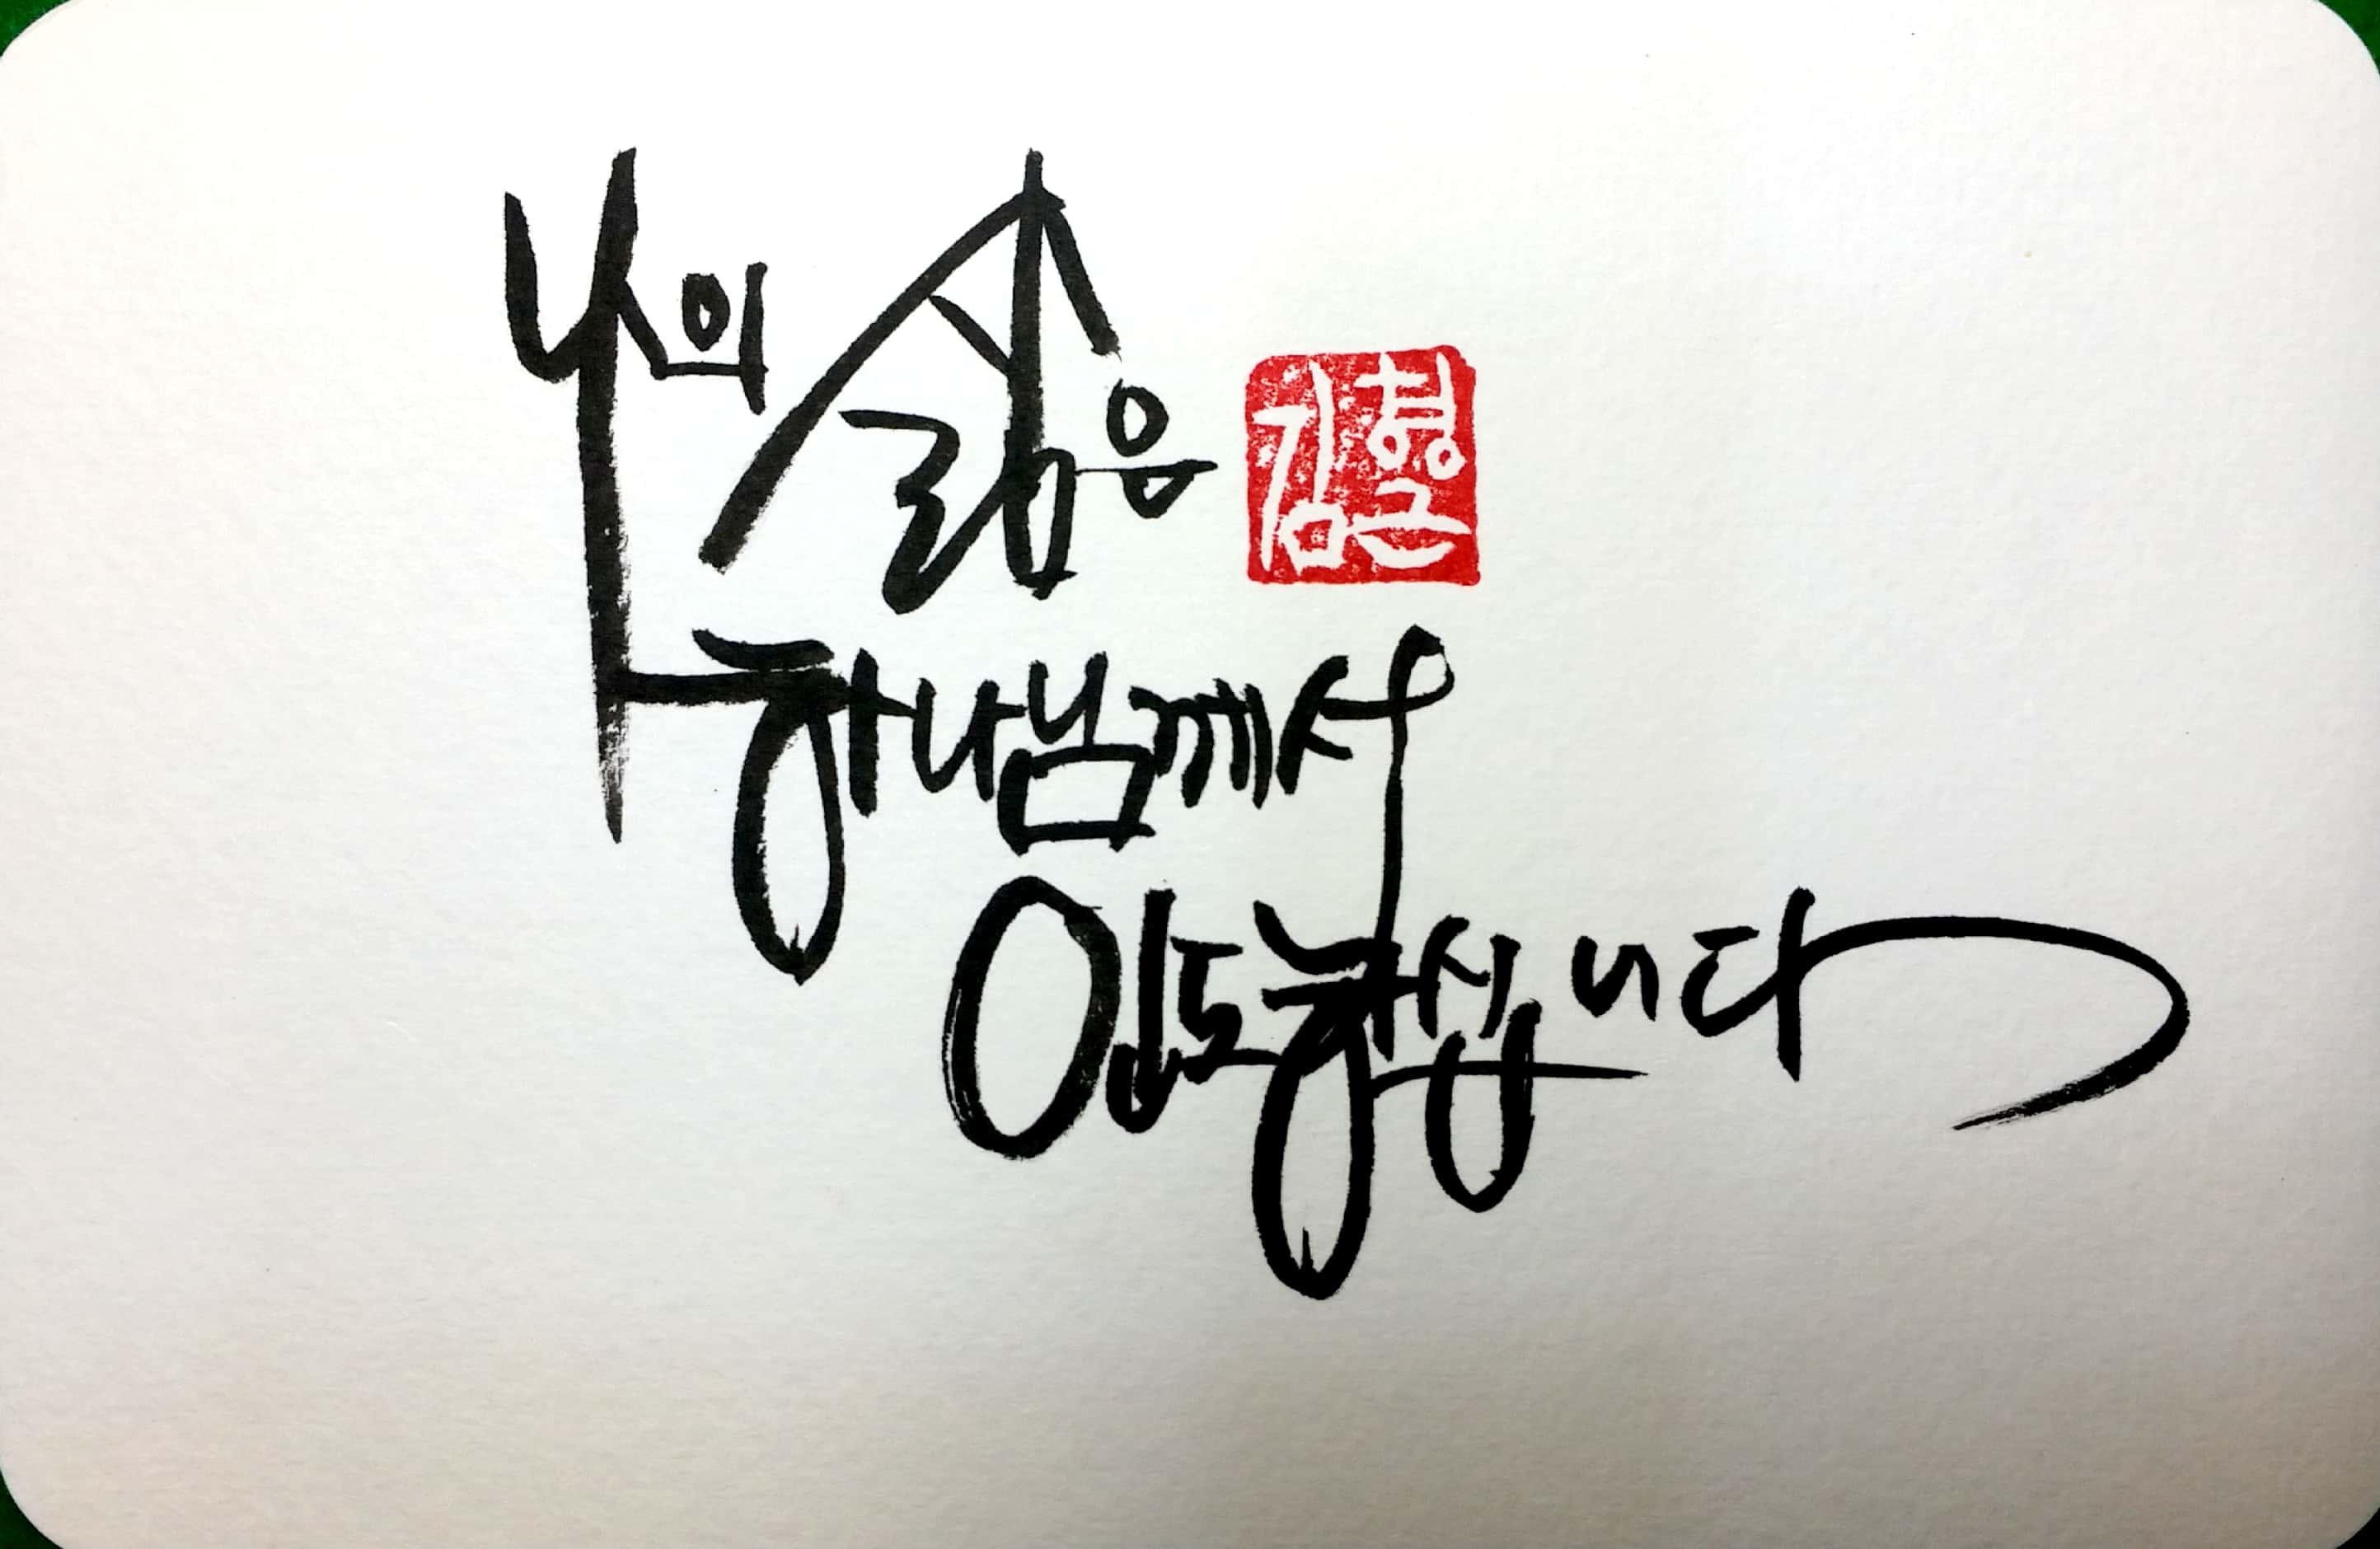 나의 삶은
하나님께서
인도하십니다
김형근